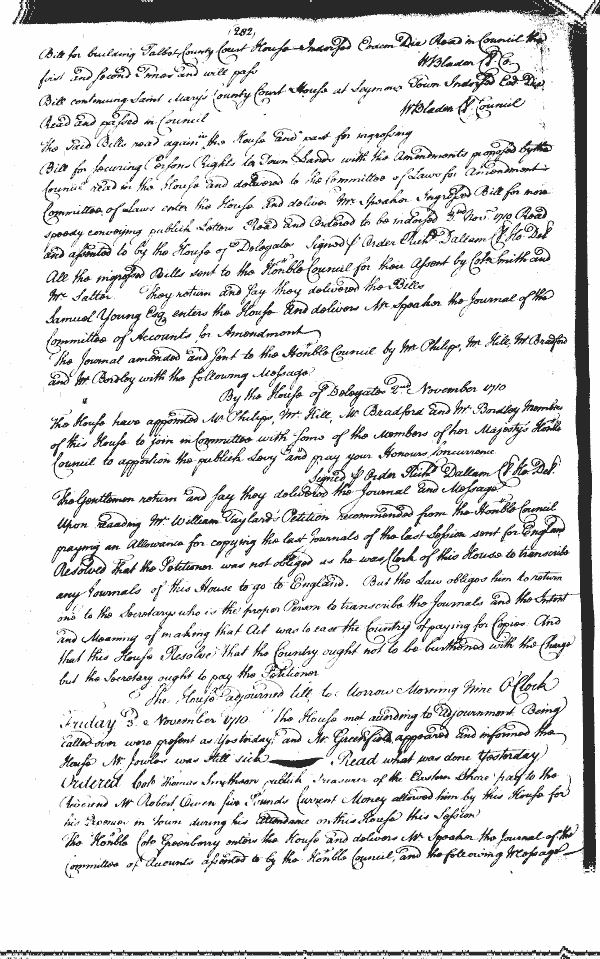 (282)
Bill for building Talbot County Court House Indorsed Eodem Die Read in Council the
first and second times and will pass
WBladen Cl Co.
Bill continuing Saint Marys County Court House at Seymour Town Indorsed Eod Die
Read and passed in Council
WBladen Cl Council
The said Bills read again in the House and past for ingrossing
Bill for securing Persons Rights to Town Lands with the Amendments proposed by the
Council read in the House and delivered to the Committee of Laws for Amendment
Committee of Laws enter the House and deliver Mr Speaker Ingrossed Bill for more
speedy conveying publick Letters Read and Ordered to be indorsed 2nd Novr 1710 Read
and assented to by the House of Delegates Signed p Order Richd Dallam Cl Ho Del
All the ingrossed Bills sent to the Honble Council for their Assent by Colo Smith and
Mr Salter They return and say they delivered the Bills
Samuel Young Esq enters the House and delivers Mr Speaker the Journal of the
Committee of Accounts for Amendment
The Journal amended and sent to the Honble Council by Mr Philips, Mr Hill, Mr Bradford
and Mr Bordley with the following Message
By the House of Delegates 2nd November 1710
The House have appointed Mr Philips, Mr Hill, Mr Bradford and Mr Bordley Members
of this House to join in Committee with some of the Members of her Majestys Honble
Council to apportion the publick Levy and pray your Honours Concurrence
Signed p Order Richd Dallam Cl Ho Del
The Gentlemen return and say they delivered the Journal and Message
Upon reading Mr William Taylards Petition recommended from the Honble Council
praying an Allowance for copying the last Journals of the last Session sent for England
Resolved that the Petitioner was not obliged as he was Clerk of this House to transcribe
any Journals of this House to go to England. But the Law obliges him to return
one to the Secretary who is the proper Person to transcribe the Journals and the Intent
and Meaning of making that Act was to ease the Country of paying for Copies. And
that this House Resolve that the Country ought not to be burthened with the Charge
but the Secretary ought to pay the Petitioner
The House adjourned till to Morrow Morning Nine O'Clock
Friday 3d November 1710. The House met according to adjournment Being
called over were present as Yesterday, and Mr Greenfield appeared and informed the
House Mr fowler was still sick Read what was done Yesterday
Ordered Colo Thomas Smythson publick Treasurer of the Eastern Shore pay to the
Reverend Mr Robert Owen five Pounds Current Money allowed him by this House for
his in Town during his attendance on this House this Session
The Honble Colo Greenberry enters the House and delivers Mr Speaker the Journal of the
Committee of Accounts assented to by the Honble Council, and the following Message